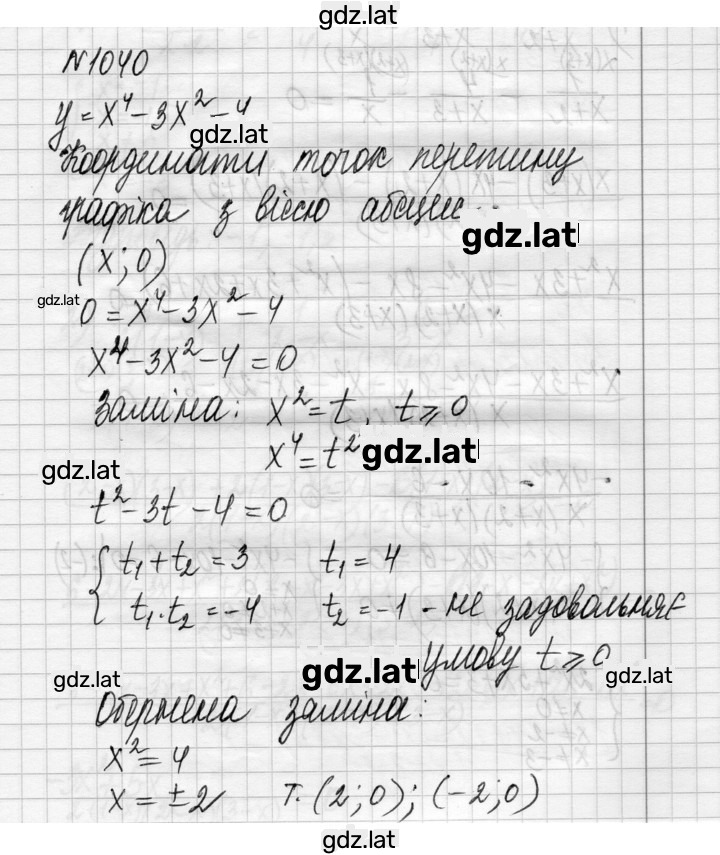 gdz.lat
N1040
y = x⁴ - 3x² - 4
gdz.lat
Координати точок перетину
графіка з віссю абсцис
gdz.lat
(x; 0)
gdz.lat
0 = x⁴ - 3x² - 4
x⁴ - 3x² - 4 = 0
Заміна: x² = t, t ⩾ 0
x⁴ = t²
gdz.lat
gdz.lat
t² - 3t - 4 = 0
{ t₁ + t₂ = 3 t₁ = 4
t₁ · t₂ = -4 t₂ = -1 - не задовольняє
умову t ⩾ 0
gdz.lat gdz.lat gdz.lat
Обернена заміна:
x² = 4
x = ±2 т. (2; 0); (-2; 0)
gdz.lat